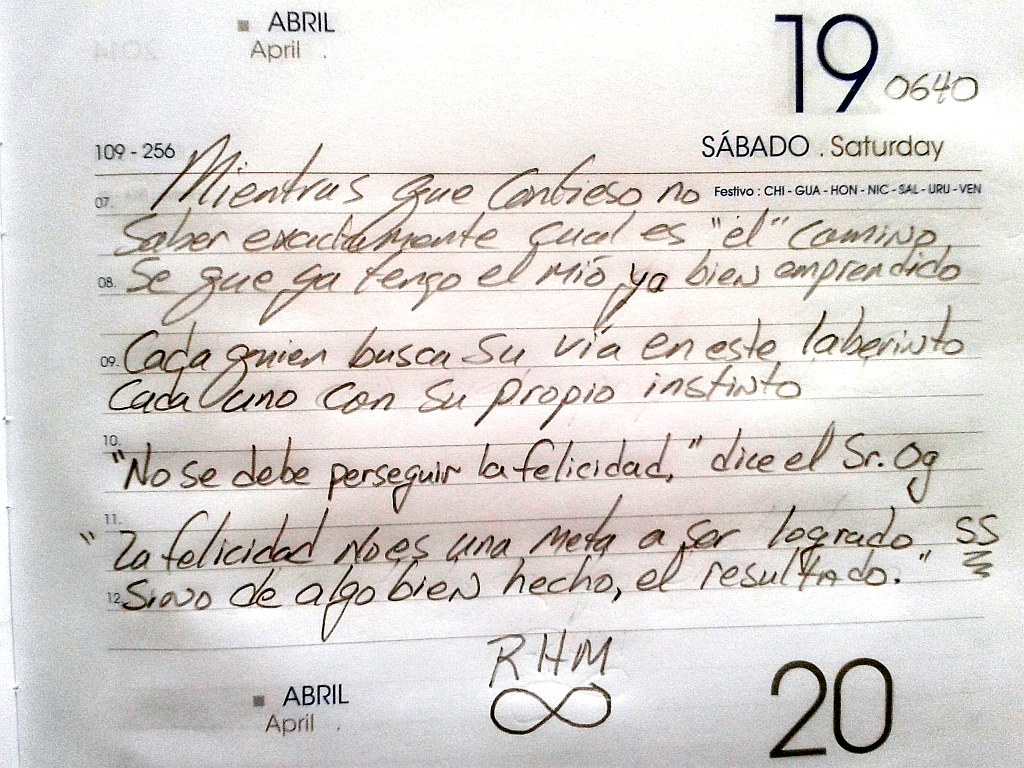 ABRIL
April .
19
0640
109 - 256
SÁBADO . Saturday
Festivo : CHI - GUA - HON - NIC - SAL - URU - VEN
Mientras que confieso no
07.
Saber exactamente cual es "el" camino,
08. Se que ya tengo el mío, ya bien emprendido
09. Cada quien busca su vía en este laberinto
Cada uno con su propio instinto
10.
"No se debe perseguir la felicidad," dice el Sr. Og
11.
"La felicidad no es una meta a ser logrado SS
12. Sino de algo bien hecho, el resultado."
RHM
ABRIL
April .
20